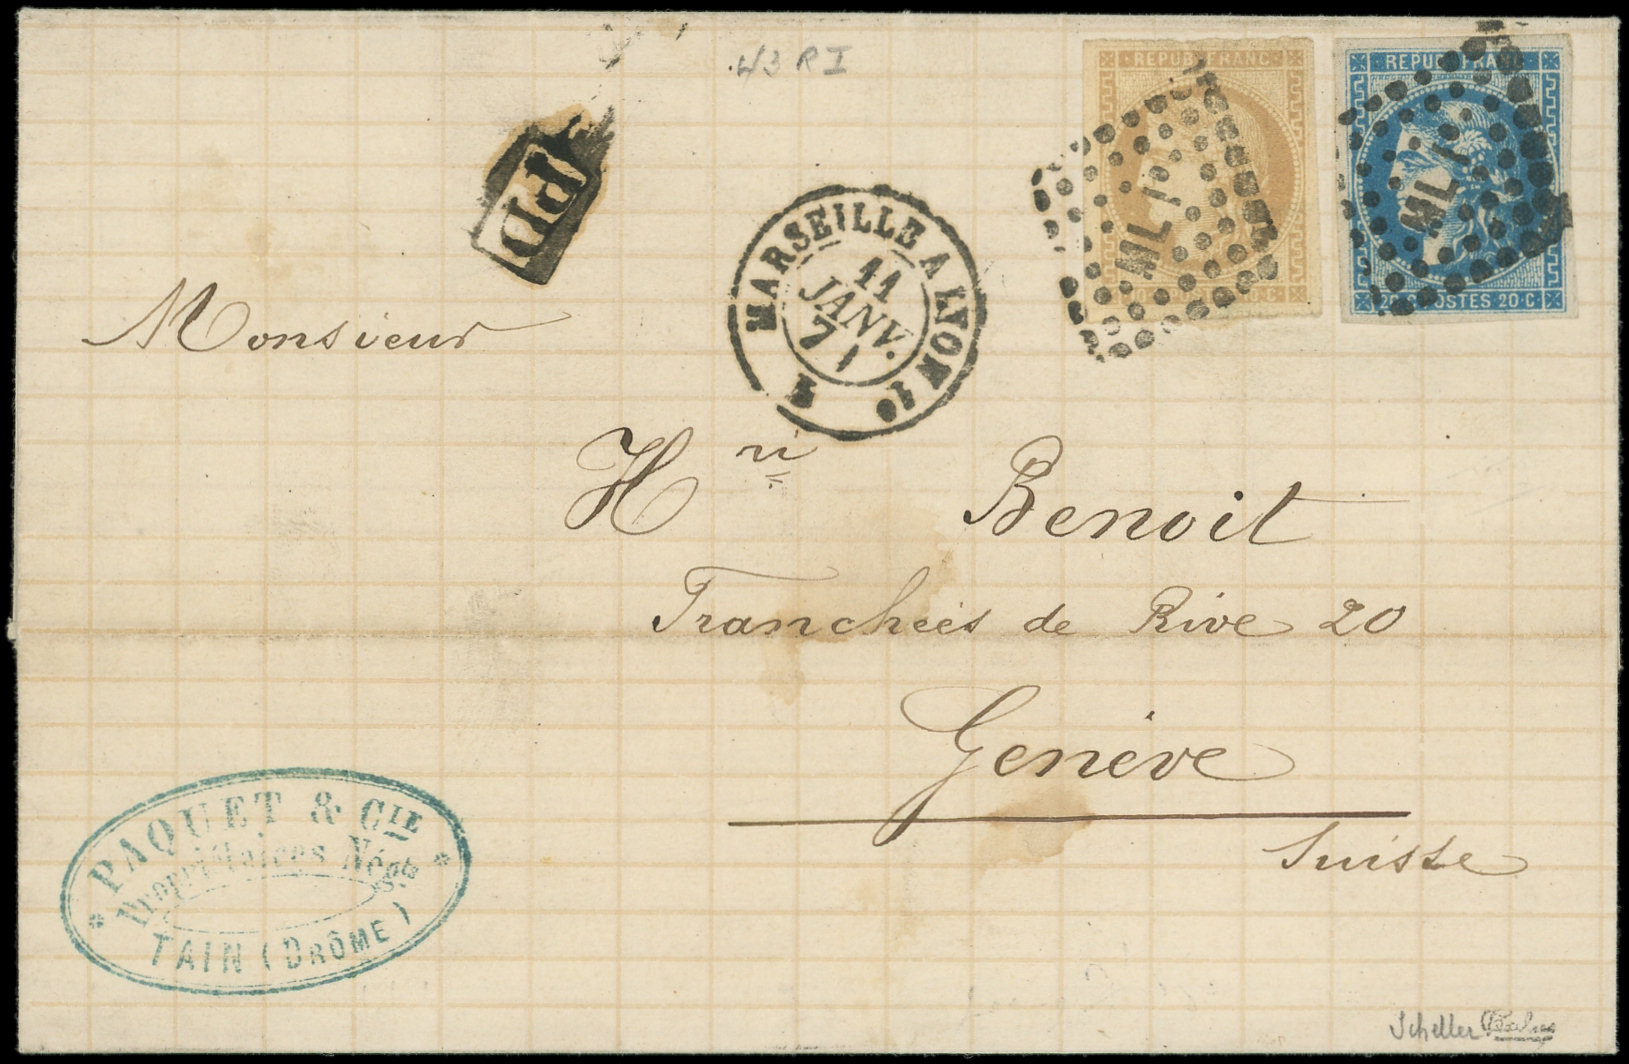 43 R I
REPUB FRANC
10 C POSTES 10 C
ML 1°
REPUB FRANC
20 C POSTES 20 C
ML 1°
PD
MARSEILLE A LYON 1°
11
JANV.
71
Monsieur
Hri Benoit
Tranchées de Rive 20
Genève
Suisse
PAQUET & CIE
Propriétaires Négts
TAIN (DRÔME)
Scheller Calves